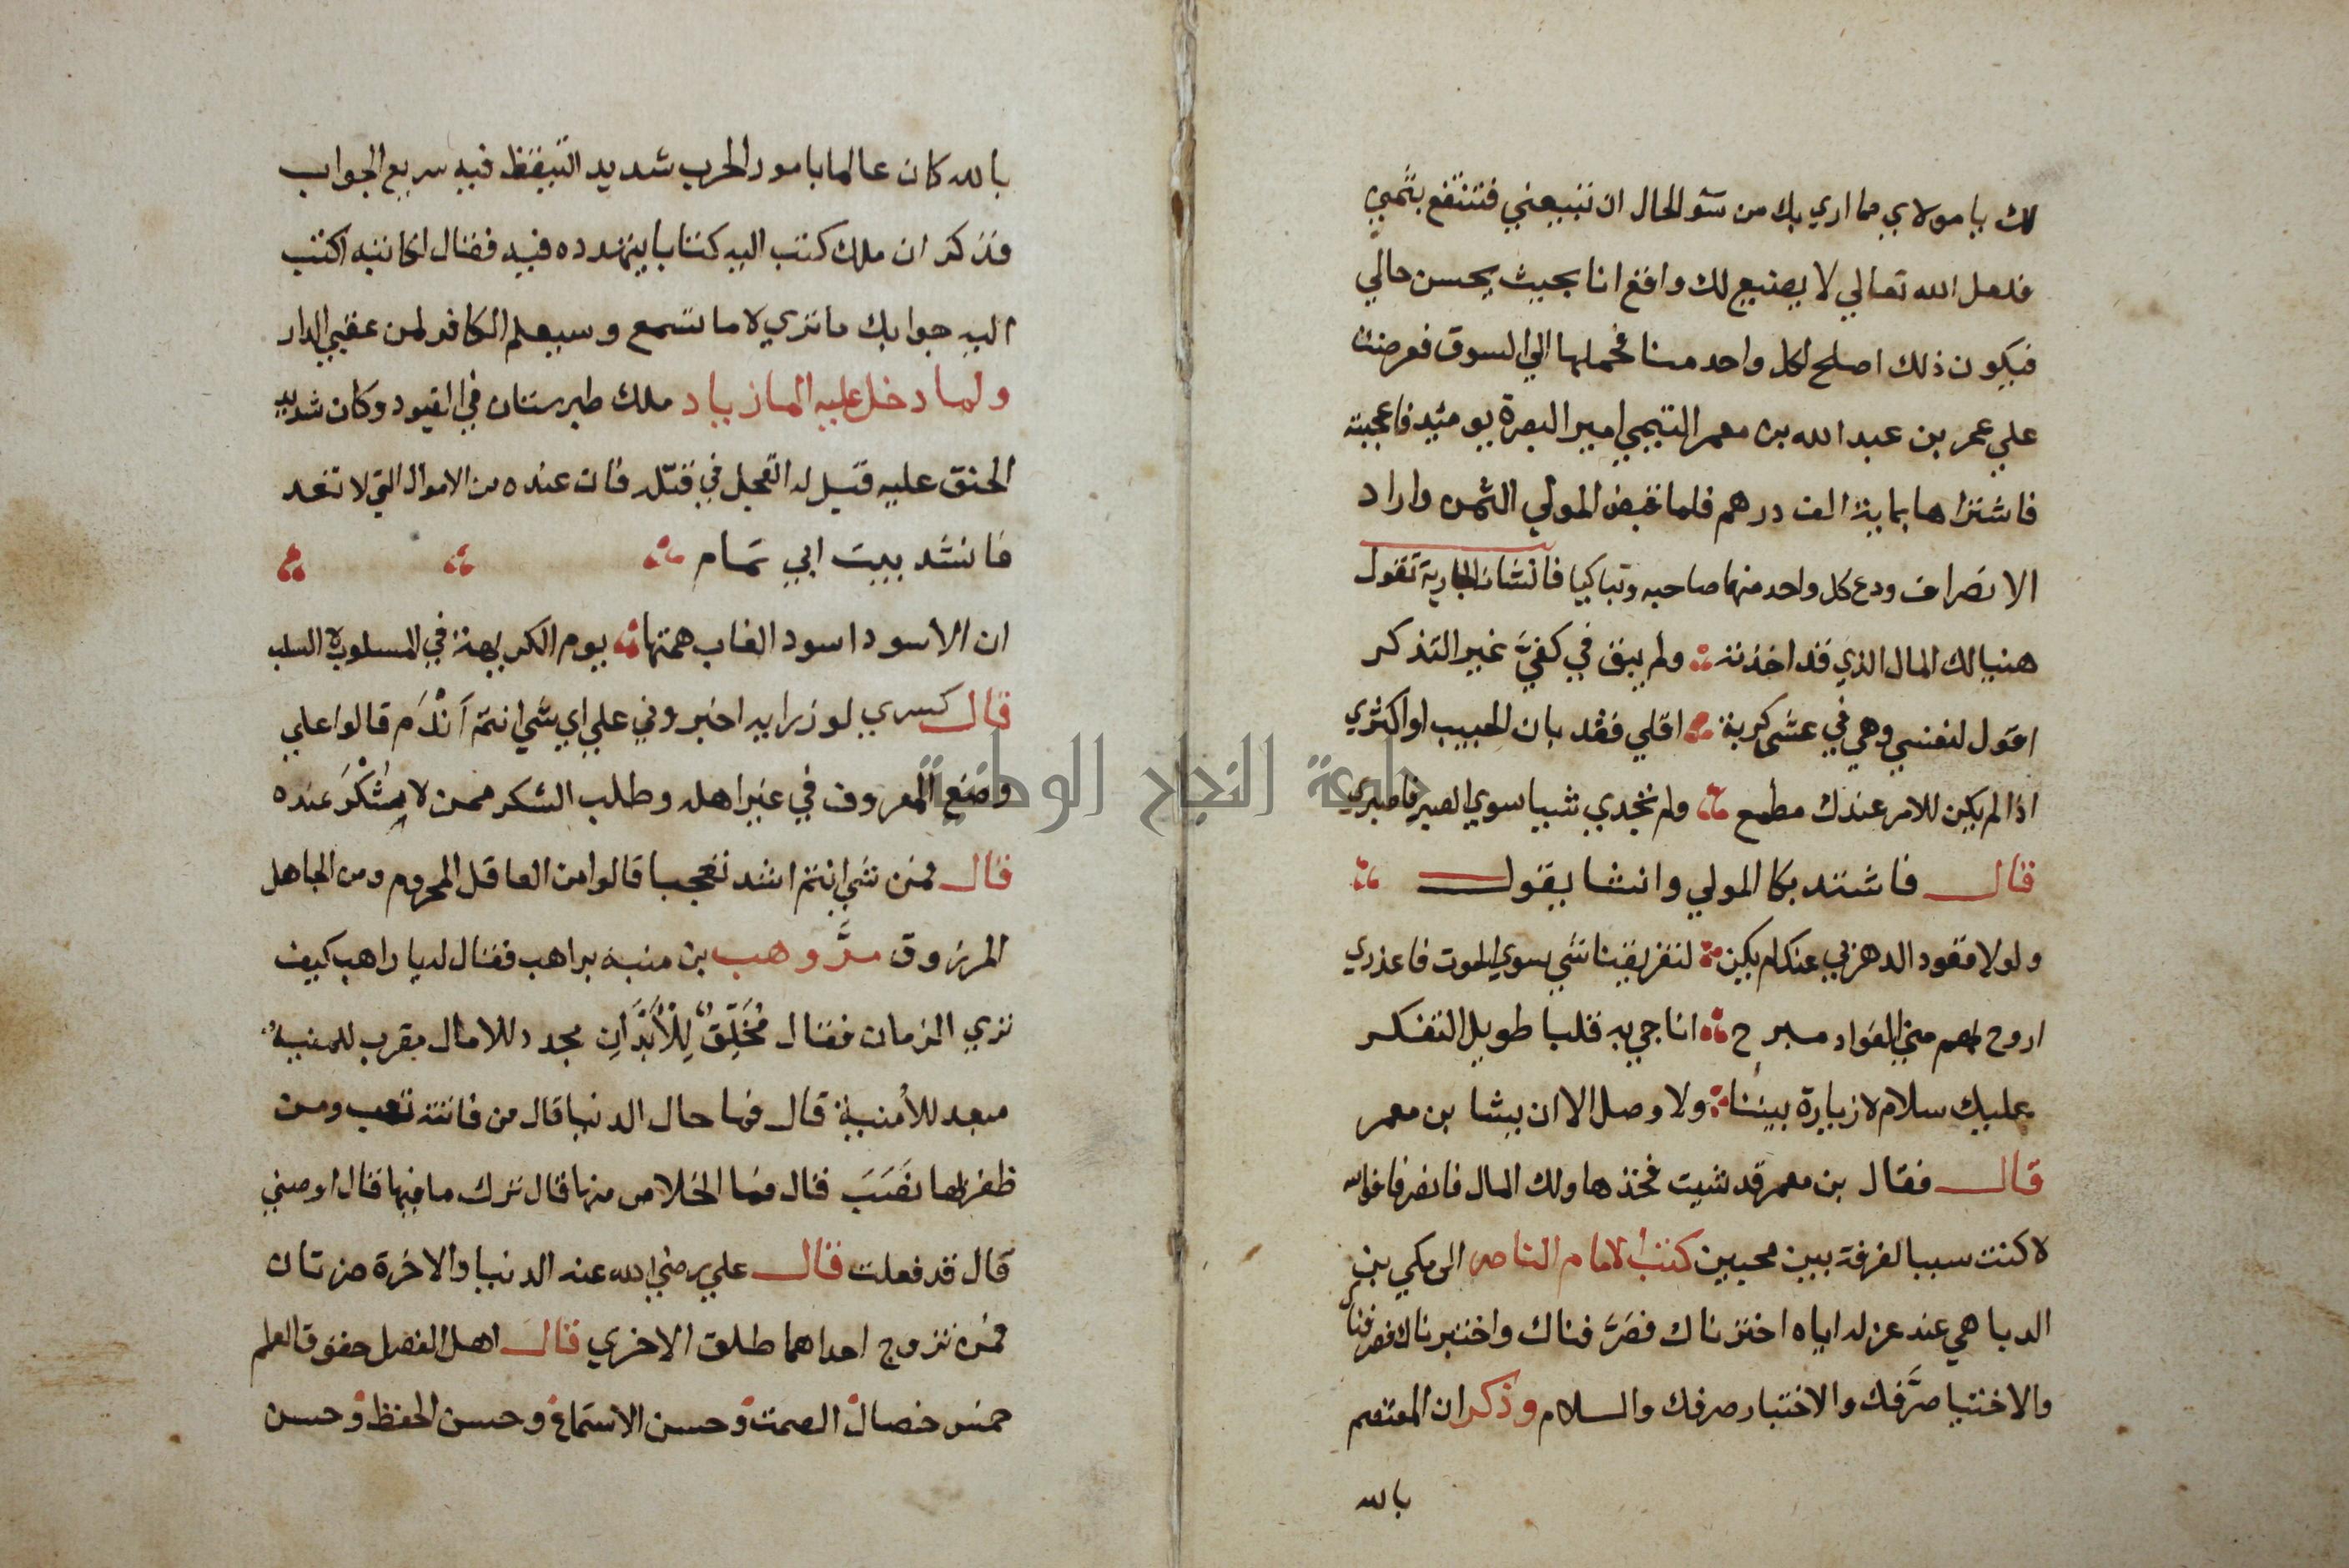 لك يا مولاي مما اري بك من سو الحال ان تبيعني فتنتفع بثمني
فلعل الله تعالي لا يضيع لك واقع انا بحيث يحسن حالي
فيكون ذلك اصلح لكل واحد منا فحملها الي السوق فعرضت
علي عمر بن عبد الله بن معمر التيمي امير البصرة يومئيد فاعجبته
فاشتراها بماية الف درهم فلما قبض المولي الثمن واراد
الانصراف ودع كل واحد منهما صاحبه وتباكيا فانشات الجارية تقول
هنيا لك المال الذي قد اخذته ولم يبق في كفيَّ غير التذكر
اقول لنفسي وهي في عشى كربة اقلي فقد بان الحبيب او اكثري
اذا لم يكن للامر عندك مطمع ولم تجدي شيا سوي الصبر فاصبري
قال فاشتد بكا المولي وانشا يقول
ولولا قعود الدهر بي عنك لم يكن لتفريقنا شي سوي الموت فاعذري
اروح بهم مني الفواد مبرح اناجي به قلبا طويل التفكر
عليك سلام لا زيارة بيننا ولا وصل الا ان يشا بن معمر
قال فقال بن معمر قد شيت فخذها ولك المال فانصرفا فوالله
لا كنت سببا لفرقة بين محبين كتب الامام الناصر الى مكي بن
الدباهي عند عزله اياه اخترناك فصَرَّفناك واختبرناك فصرفناك
والاختيا صرَّفك والاختبار صرفك والسلام وذكر ان المعتصم
بالله
جامعة النجاح الوطنية
بالله كان عالما بامور الحرب شديد التيقظ فيه سريع الجواب
فذكر ان ملك كتب اليه كتابا يتهدده فيه فقال لكاتبه اكتب
اليه جوابك ما تري لا ما تسمع وسيعلم الكافر لمن عقبي الدار
ولما دخل عليه المازياد ملك طبرستان في القيود وكان شديد
الحنق عليه قيل له اتعجل في قتله فان عنده من الاموال التي لا تعد
فانشد بيت ابي تمام
ان الاسود اسود الغاب همتها يوم الكريهة في المسلوب لا السلب
قال كسري لوزرايه اخبروني علي اي شي انتم اَنْدَم قالوا علي
واضع المعروف في غير اهله وطلب الشكر ممن لا يُشْكَر عنده
قال فمن شي انتم اشد تعجبا قالوا من العاقل المحروم ومن الجاهل
المرزوق مرَّ وهب بن منبه براهب فقال له يا راهب كيف
تري الزمان فقال مُخَلِّقٌ لِلْأَبْدَانِ مجدد للامال مقرب للمنية
مبعد للأمنية قال فما حال الدنيا قال من فاتته تعب ومن
ظفر بها نَصَبَ قال فما الخلاص منها قال ترك ما فيها قال اوصني
قال قد فعلت قال علي رضي الله عنه الدنيا والاخرة ضرتان
فمن تزوج احداهما طلق الاخري قال اهل الفضل حقوق العلم
خمس خصال الصمت وحسن الاستماع وحسن الحفظ وحسن